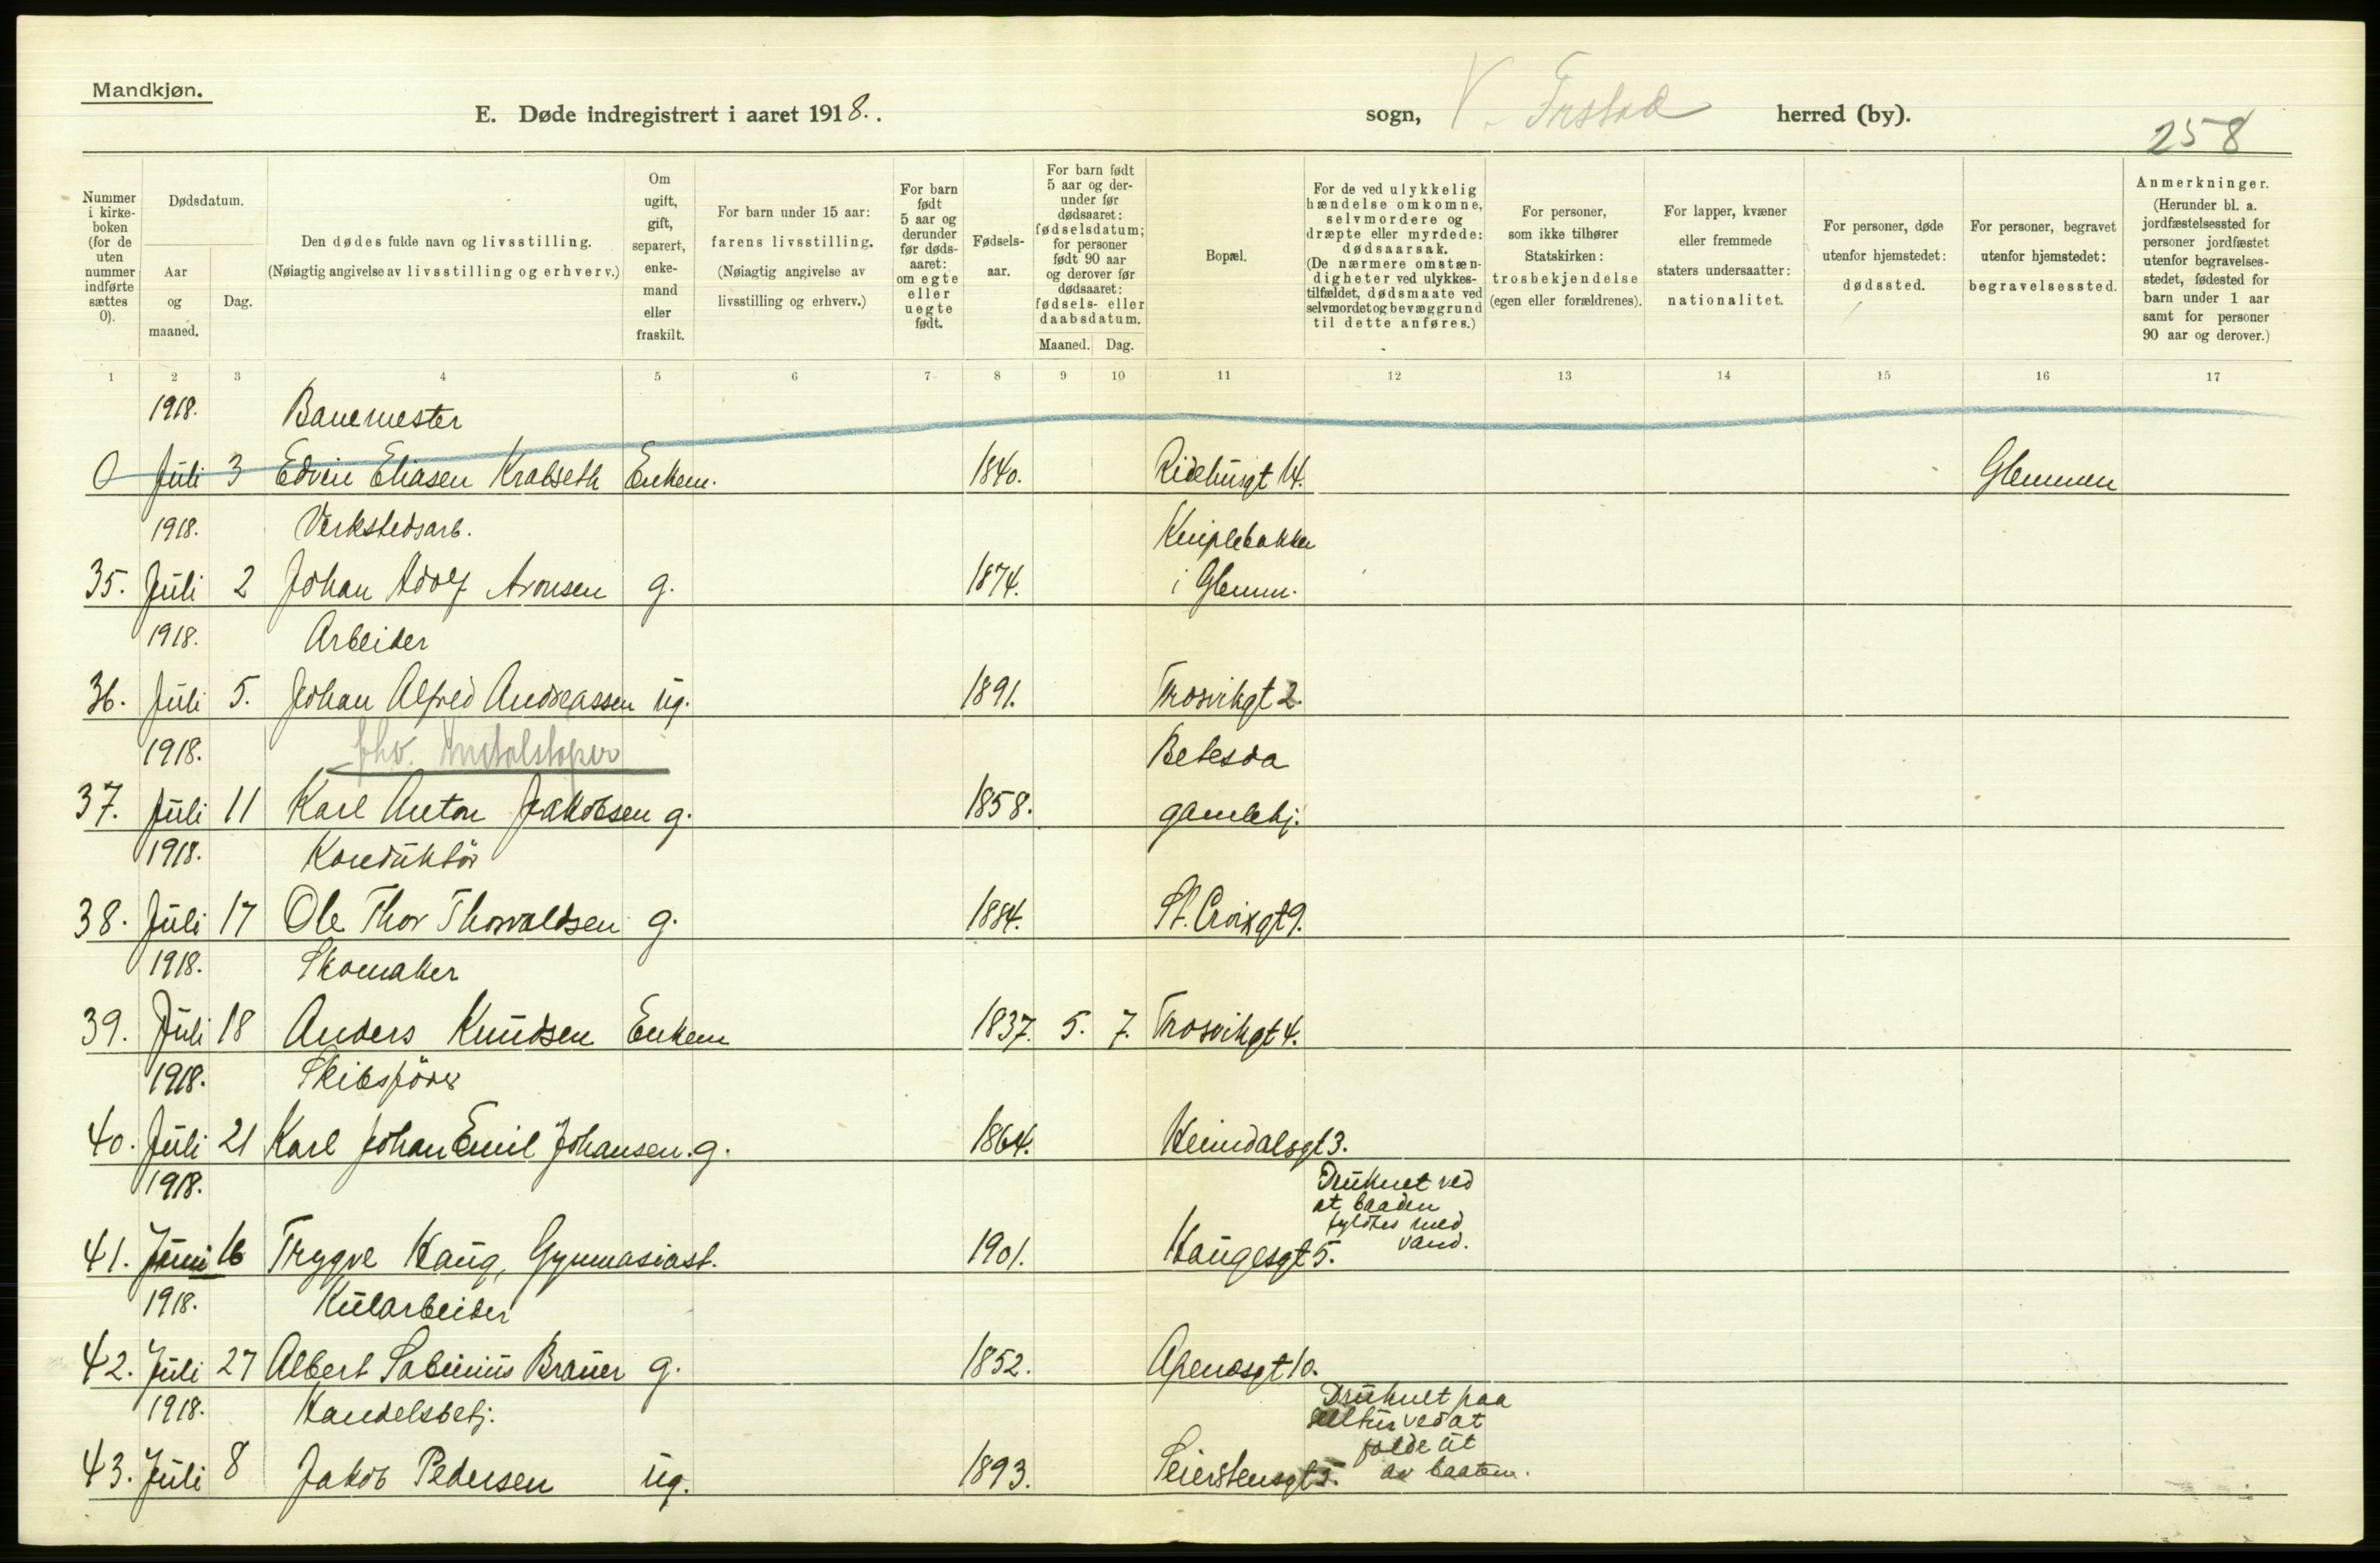 Mandkjøn.
E. Døde indregistrert i aaret 1918. .
sogn, V. Frstad herred (by).
258
Nummer i kirkeboken (for de uten nummer indførte sættes 0).
Dødsdatum.
Aar og maaned.
Dag.
Den dødes fulde navn og livsstilling.
(Nøiagtig angivelse av livsstilling og erhverv.)
Om ugift, gift, separert, enkemand eller fraskilt.
For barn under 15 aar: farens livsstilling.
(Nøiagtig angivelse av livsstilling og erhverv.)
For barn født 5 aar og derunder før dødsaaret: om egte eller uegte født.
Fødselsaar.
For barn født 5 aar og derunder før dødsaaret: fødselsdatum; for personer født 90 aar og derover før dødsaaret: fødsels- eller daabsdatum.
Maaned. Dag.
Bopæl.
For de ved ulykkelig hændelse omkomne, selvmordere og dræpte eller myrdede: dødsaarsak.
(De nærmere omstændigheter ved ulykkestilfældet, dødsmaate ved selvmordet og bevæggrund til dette anføres.)
For personer, som ikke tilhører Statskirken: trosbekjendelse (egen eller forældrenes).
For lapper, kvæner eller fremmede staters undersaatter: nationalitet.
For personer, døde utenfor hjemstedet: dødssted.
For personer, begravet utenfor hjemstedet: begravelsessted.
Anmerkninger.
(Herunder bl. a. jordfæstelsessted for personer jordfæstet utenfor begravelsesstedet, fødested for barn under 1 aar samt for personer 90 aar og derover.)
1 2 3 4 5 6 7 8 9 10 11 12 13 14 15 16 17
1918. Banemester
0 Juli 3 Edvin Eliasen Krabseth Enkem. 1840. Ridehusgt 14. Glemmen
1918. Verkstedsarb. Kniplebakken
35. Juli 2 Johan Adolf Aronsen g. 1874. i Glemm.
1918. Arbeider
36. Juli 5. Johan Alfred Andreassen ug. 1891. Trosvikgt 2.
1918. fhv. Metalstøper Betesda
37. Juli 11 Karl Anton Jakobsen g. 1858. gamlehj.
1918. Konduktör
38. Juli 17 Ole Thor Thorvaldsen g. 1884. St. Croixgt 9.
1918. Skomaker
39. Juli 18 Anders Knudsen Enkem 1837. 5. 7. Trosvikgt 4.
1918. Skibsförer
40. Juli 21 Karl Johan Emil Johansen. g. 1864. Heimdalsgt 3.
1918. Druknet ved
at baaden
fyldtes med
vand.
41. Juni 16 Trygve Haug, Gymnasiast. 1901. Haugesgt 5.
1918. Kularbeider
42. Juli 27 Albert Sabinius Brauer g. 1852. Apenesgt 10.
1918. Handelsbetj. Druknet paa
seiltur ved at
falde ut
av baaten.
43. Juli 8 Jakob Pedersen ug. 1893. Seierstensgt 5.